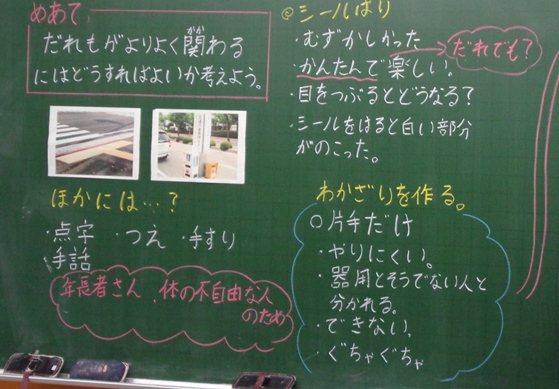 めあて、
だれもがよりよく関わる
かか
にはどうすればよいか考えよう。
ほかには…?
・点字 ・つえ ・手すり
・手話
年長者さん、体の不自由な人
のため
◎シールはり
・むずかしかった
・かんたんで楽しい。
だれでも?
・目をつぶるとどうなる?
・シールをはると白い部分
がのこった。
わかざりを作る。
○片手だけ
・やりにくい。
・器用とそうでない人と
分かれる。
・できない。
・ぐちゃぐちゃ